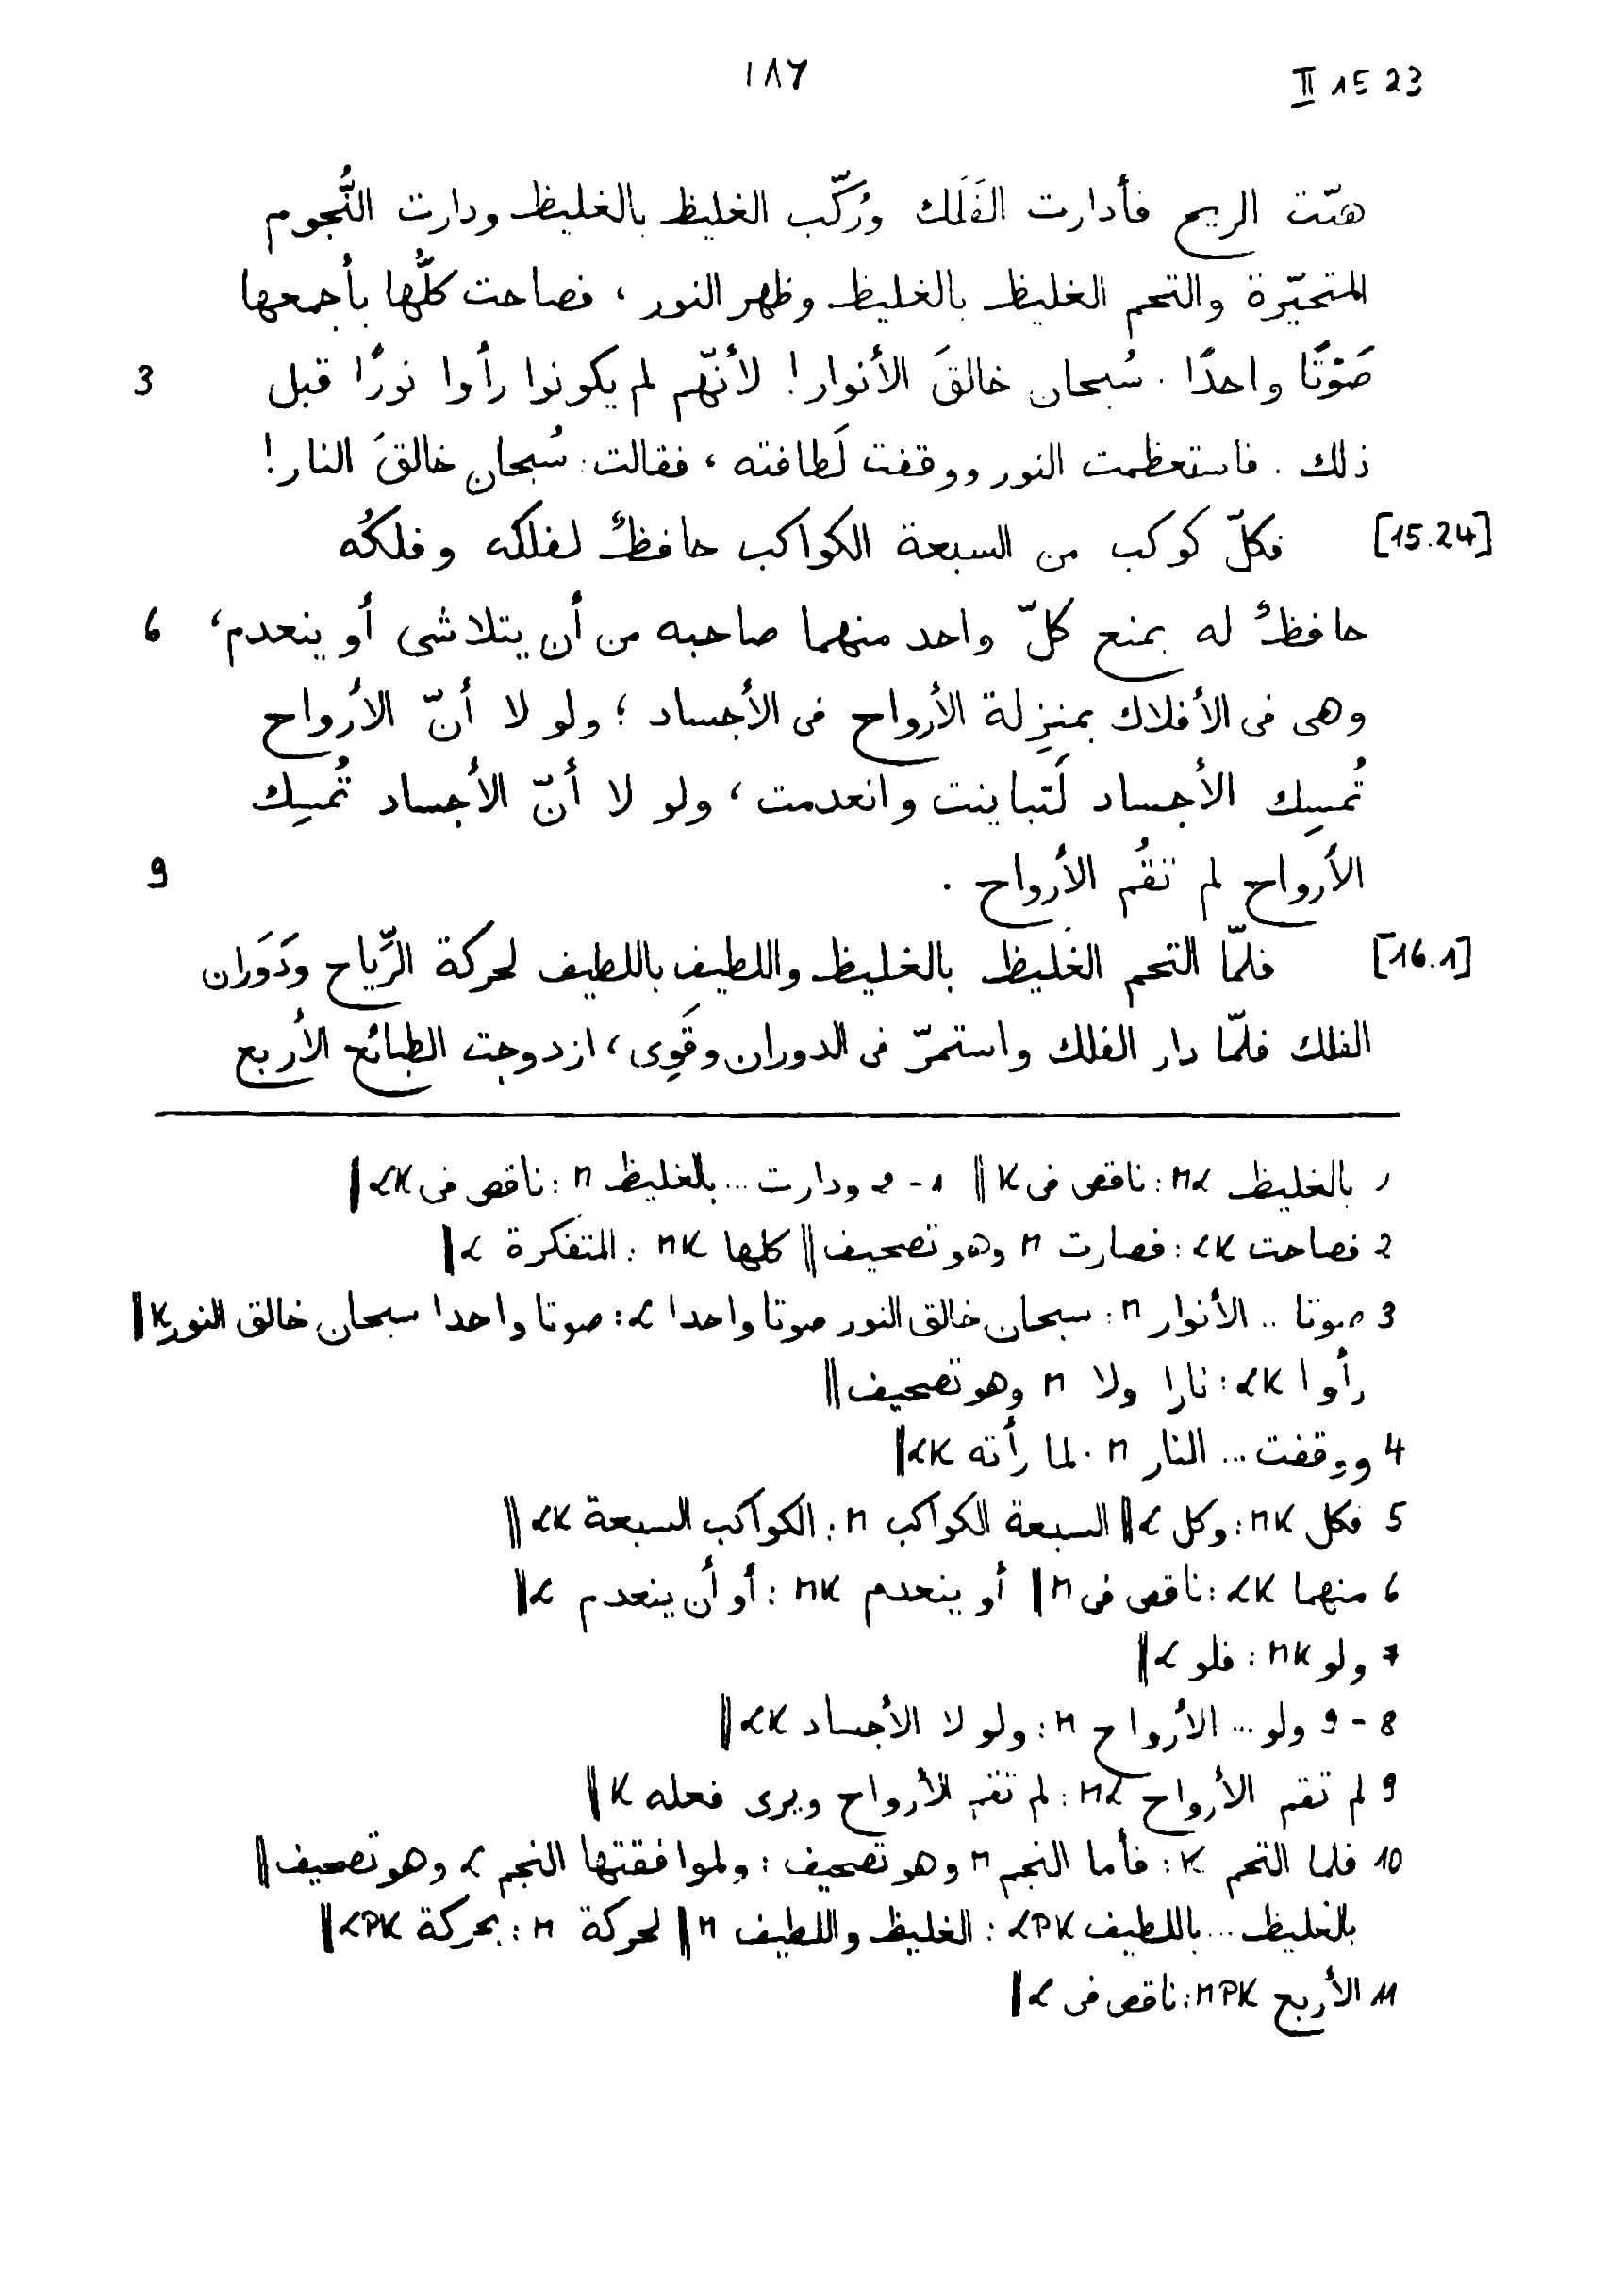 ١٨٧
II 15 23
هبّت الريح فأدارت الفَلَك ورُكّب الغليظ بالغليظ ودارت النُّجوم
المتحيّرة والتحم الغليظ بالغليظ وظهر النور ، فصاحت كلُّها بأجمعها
3 صَوْتًا واحدًا : سُبحان خالقَ الأنوار! لأنّهم لم يكونوا رأوا نورًا قبل
ذلك . فاستعظمت النور ووقفت لَطافته ، فقالت : سُبحان خالقَ النار!
[15.24] فكلّ كوكب من السبعة الكواكب حافظٌ لفلكه وفلكُه
6 حافظٌ له يمنع كلّ واحد منهما صاحبه من أن يتلاشى أو ينعدم ،
وهى فى الأفلاك بمنزِلة الأرواح فى الأجساد ؛ ولو لا أنّ الأرواح
تُمسِك الأجساد لَتباينت وانعدمت ، ولو لا أنّ الأجساد تُمسِك
9 الأرواح لم تقُم الأرواح .
[16.1] فلمّا التحم الغليظ بالغليظ واللطيف باللطيف لحركة الرِّياح ودَوَران
الفلك فلمّا دار الفلك واستمرّ فى الدوران وقَوِى ، ازدوجت الطبائع الأربع
1 بالغليظ ML : ناقص فى K || 1 - 2 ودارت ... بالغليظ M : ناقص فى LK ||
2 فصاحت LK : فصارت M وهو تصحيف || كلها MK : المتفكرة L ||
3 صوتا .. الأنوار M : سبحان خالق النور صوتا واحدا L : صوتا واحدا سبحان خالق النور K ||
رأوا LK : نارا ولا M وهو تصحيف ||
4 ووقفت ... النار M : لما رأته LK ||
5 فكل MK : وكل L || السبعة الكواكب M : الكواكب السبعة LK ||
6 منهما LK : ناقص فى M || أو ينعدم MK : أو أن ينعدم L ||
7 ولو MK : فلو L ||
8 - 9 ولو ... الأرواح M : ولو لا الأجساد LK ||
9 لم تقم الأرواح ML : لم تقم الأرواح ويرى فعله K ||
10 فلما التحم K : فأما النجم M وهو تصحيف : ولموافقتها النجم L وهو تصحيف ||
بالغليظ ... باللطيف LPK : الغليظ واللطيف M || لحركة M : بحركة LPK ||
11 الأربع MPK : ناقص فى L ||